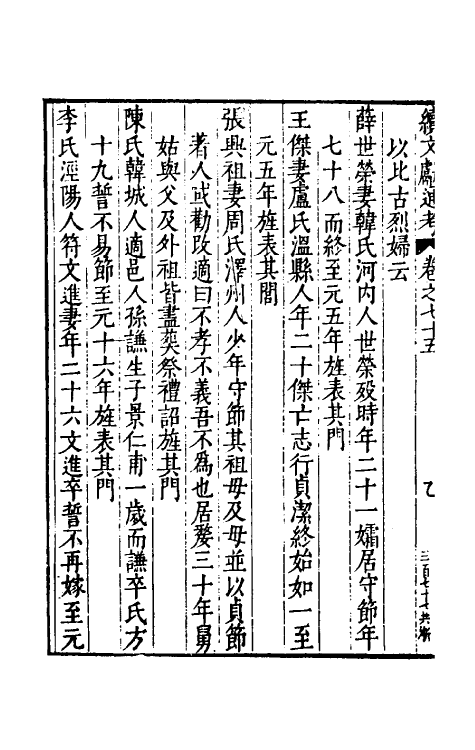 續文獻通考 卷之七十五
以比古烈婦云
薛世榮妻韓氏河内人世榮殁時年二十一孀居守節年
七十八而終至元五年旌表其門
王傑妻盧氏溫縣人年二十傑亡志行貞潔終始如一至
元五年旌表其閭
張興祖妻周氏澤州人少年守節其祖母及母並以貞節
著人或勸改適曰不孝不義吾不爲也居嫠三十年舅
姑與父及外祖皆盡葬祭禮詔旌其門
陳氏韓城人適邑人孫謙生子景仁甫一歲而謙卒氏方
十九誓不易節至元十六年旌表其門
李氏涇陽人符文進妻年二十六文進卒誓不再嫁至元